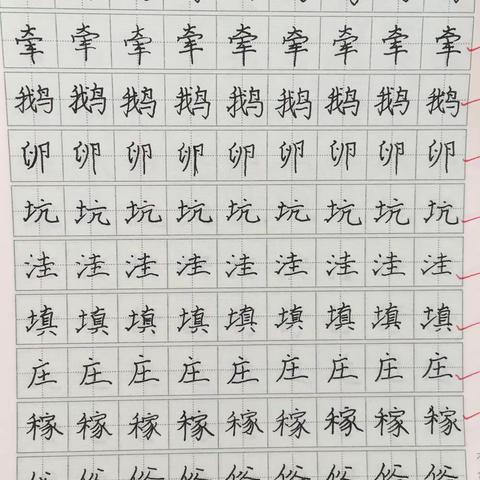 牵牵牵牵牵牵牵牵牵
鹅鹅鹅鹅鹅鹅鹅鹅鹅
卵卵卵卵卵卵卵卵卵
坑坑坑坑坑坑坑坑坑
洼洼洼洼洼洼洼洼洼
填填填填填填填填填
庄庄庄庄庄庄庄庄庄
稼稼稼稼稼稼稼稼稼
俗俗俗俗俗俗俗俗俗